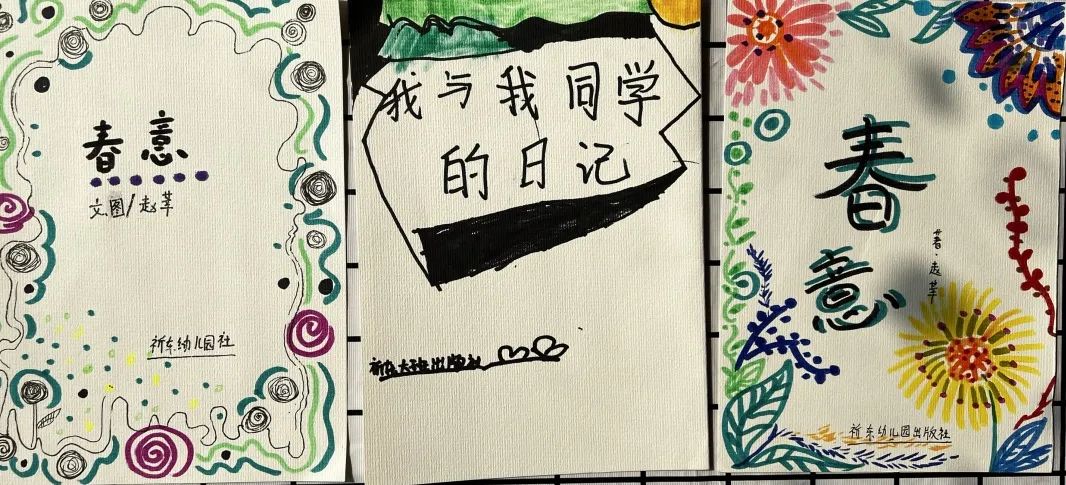 春意
文.图/赵苹
祈东幼儿园社
我与我同学
的日记
祈东大班出版社
春
意
著·赵苹
祈东幼儿园出版社